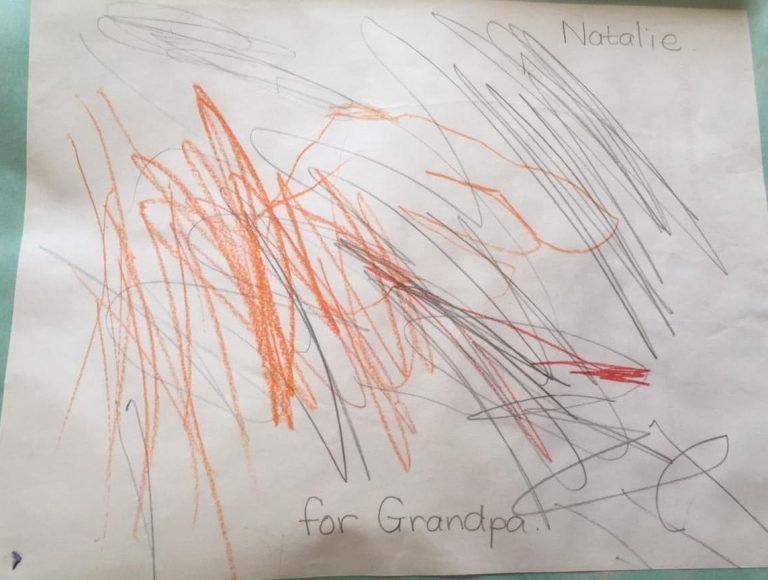 Natalie.
for Grandpa.